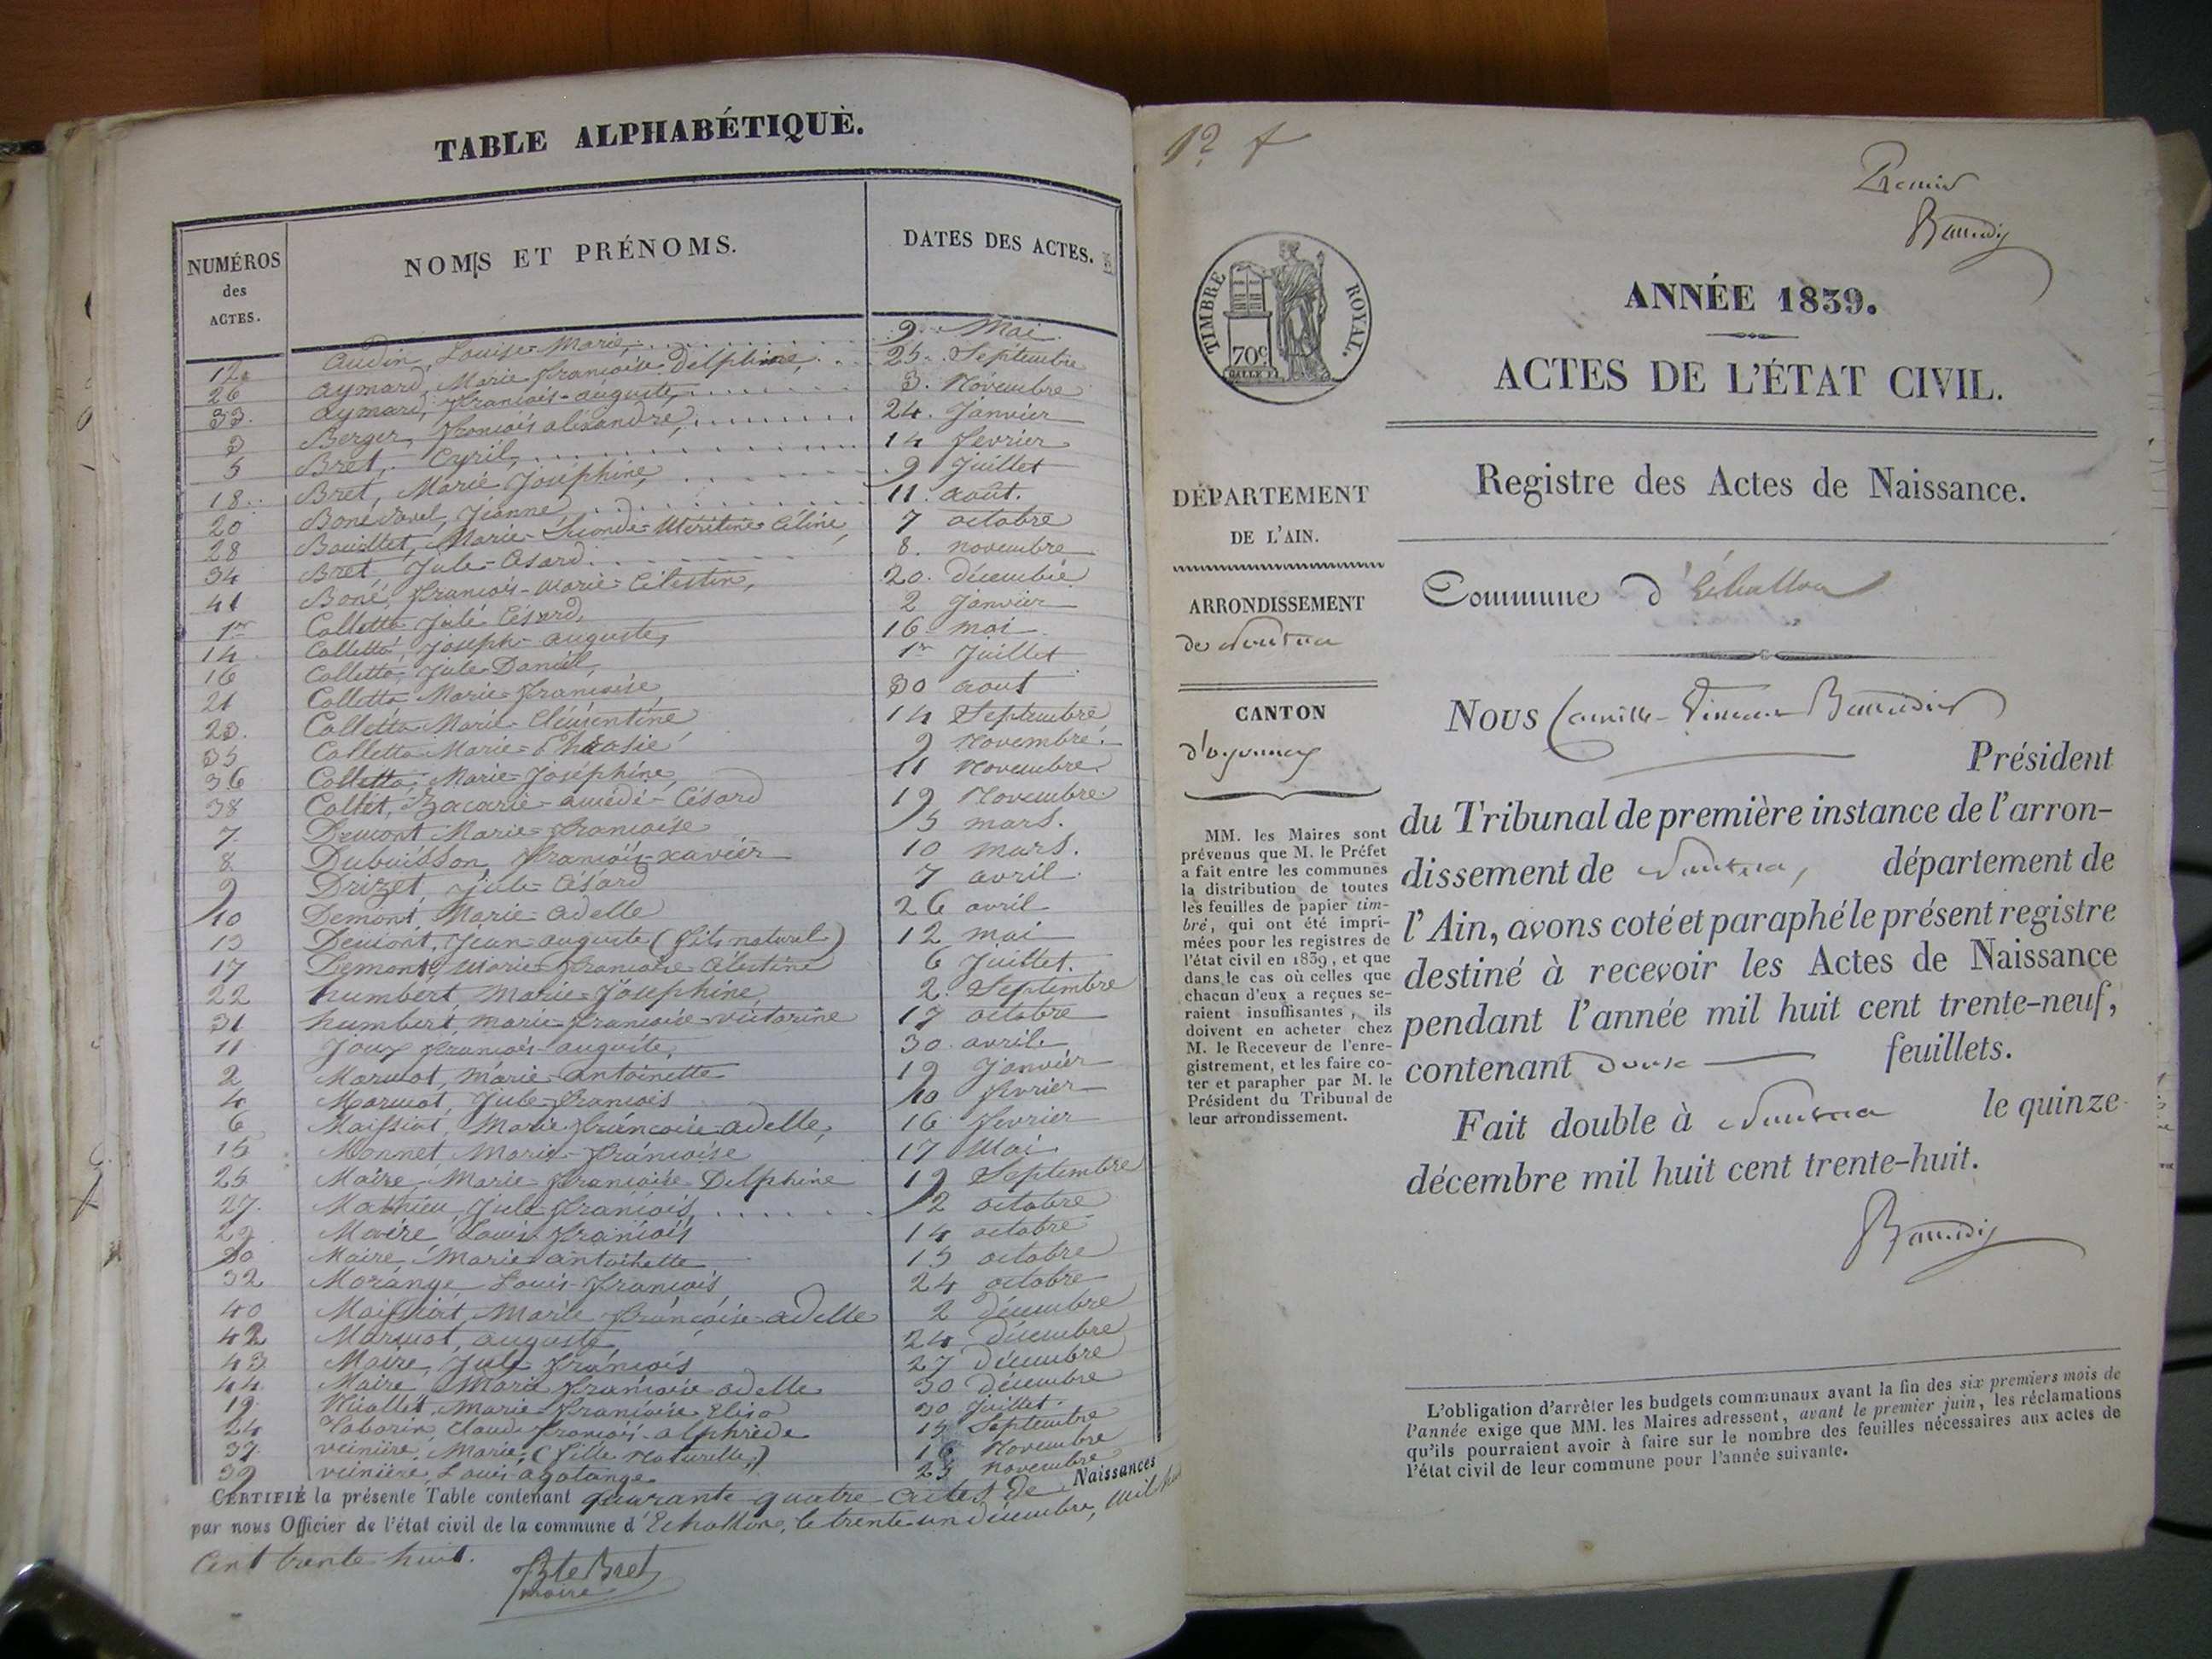 TABLE ALPHABÉTIQUE.
NUMÉROS des ACTES.
NOMS ET PRÉNOMS.
DATES DES ACTES.
12 Audin, Louise-Marie, 9 Mai
26 Aymard, Marie françoise Delphine, 25 Septembre
33 Aymard, françois-auguste, 3. Novembre
3 Berger, françois alexandre, 24. Janvier
5 Bret, Cyril, 14 fevrier
18 Bret, Marie Joséphine, 9 Juillet
20 Jeanne 11. août.
28 Bouillet, Marie- Céline, 7 octobre
34 Bret Jule-Césard 8. novembre
41 Boné, françois-Marie-Célestin, 20. décembre
1er Colletta Jule Césard, 2 Janvier
14 Colletta, Joseph-auguste, 16 mai
16 Colletta, Jule-Daniel, 1er Juillet
21 Colletta Marie-françoise, 30 aout
23. Colletta Marie-Clémentine 14 Septembre
35 Colletta Marie- 9 Novembre.
36 Colletta, Marie-Joséphine, 11 Novembre.
38 Collet, Zacarie-amédé-Césard 19 Novembre.
7. Demont Marie-françoise 5 mars.
8 Dubuisson françois-xavier 10 mars.
9 Drizet, Jule-Césard 7 avril
10 Demont, Marie-adelle 26 avril
13 Demont, Jean-auguste (fils naturel) 12 mai
17 Demont Marie-françoise Célestine 6 Juillet.
22 humbert, Marie-Josephine, 2. Septembre
31 humbert, marie-françoise-victorine 17 octobre
11 Joux françois-auguste, 30 avril
2 Marmot, marie-antoinette 19 Janvier
4 Marmot, Jule-françois 10 fevrier
6 Maissiat, Marie-françoise-adelle, 16 fevrier
15 Monnet, Marie-françoise 17 Mai
25 Maire, Marie-françoise-Delphine 19 Septembre
27. Mathieu, Jule-françois, 2 octobre
29 Maire Louis-françois 14 octobre
30 Maire, Marie-antoinette 15 octobre
32 Morange, Louis-françois, 24 octobre
40 Maissiat, Marie-françoise-adelle 2 décembre
42 Marmot, auguste 24 décembre
43 Maire, Jule-françois 27 décembre
44 Maire, Marie françoise adelle 30 décembre
19. Marie-françoise Elisa 30 Juillet.
24 Taborin, Claude françois-alphrède 15 Septembre
37. Marie, (fille naturelle,) 16 Novembre
39 Louis-agatange 25 novembre
CERTIFIÉ la présente Table contenant quarante quatre actes de Naissances
par nous Officier de l'état civil de la commune d'Echallon, le trente un décembre, mil huit
Cent trente huit.
Bret
maire
Premier
ANNÉE 1839.
TIMBRE ROYAL.
70c
ACTES DE L'ÉTAT CIVIL.
Registre des Actes de Naissance.
DÉPARTEMENT
DE L'AIN.
ARRONDISSEMENT
de Nantua
CANTON
d'oyonnax
MM. les Maires sont
prévenus que M. le Préfet
a fait entre les communes
la distribution de toutes
les feuilles de papier tim-
bré, qui ont été impri-
mées pour les registres de
l'état civil en 1839, et que
dans le cas où celles que
chacun d'eux a reçues se-
raient insuffisantes, ils
doivent en acheter chez
M. le Receveur de l'enre-
gistrement, et les faire co-
ter et parapher par M. le
Président du Tribunal de
leur arrondissement.
Commune d'Echallon
Nous Camille-Vincent Baudin
Président
du Tribunal de première instance de l'arron-
dissement de Nantua, département de
l'Ain, avons coté et paraphé le présent registre
destiné à recevoir les Actes de Naissance
pendant l'année mil huit cent trente-neuf,
contenant douze feuillets.
Fait double à Nantua le quinze
décembre mil huit cent trente-huit.
L'obligation d'arrêter les budgets communaux avant la fin des six premiers mois de
l'année exige que MM. les Maires adressent, avant le premier juin, les réclamations
qu'ils pourraient avoir à faire sur le nombre des feuilles nécessaires aux actes de
l'état civil de leur commune pour l'année suivante.